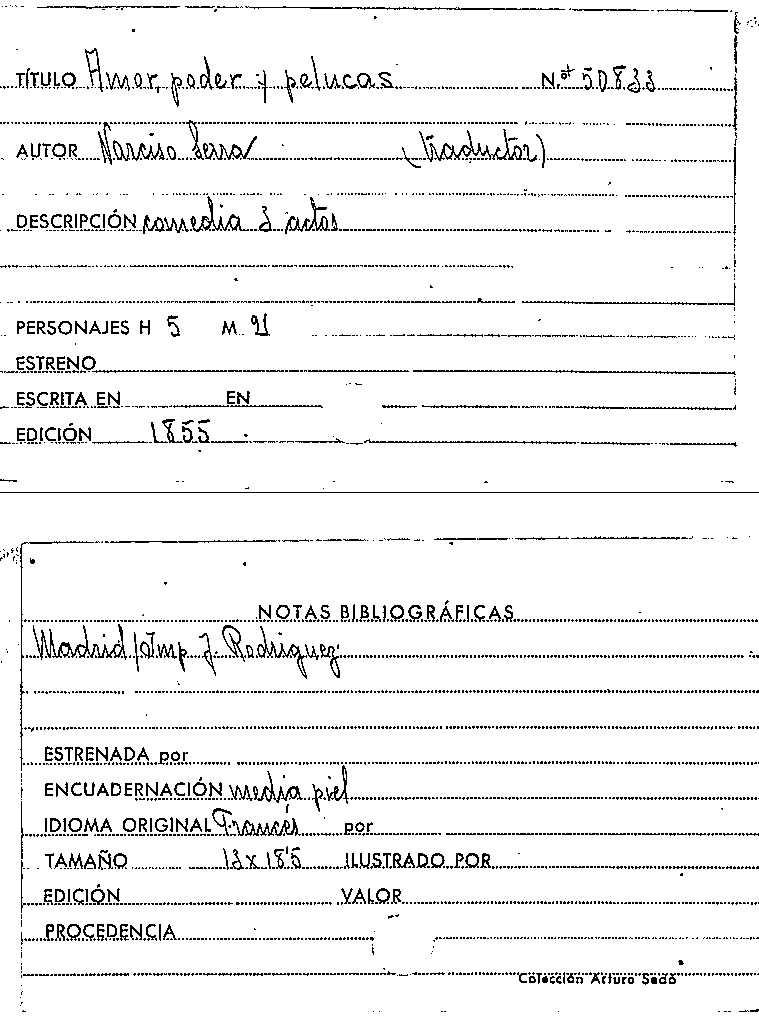 TÍTULO Amor, poder y pelucas N.º 50833
AUTOR Narciso Serra (traductor)
DESCRIPCIÓN comedia 3 actos
PERSONAJES H 5 M.
ESTRENO
ESCRITA EN EN
EDICIÓN 1855
NOTAS BIBLIOGRÁFICAS
Madrid Imp J. Rodriguez
ESTRENADA por
ENCUADERNACIÓN media piel
IDIOMA ORIGINAL Francés por
TAMAÑO 13x18'5 ILUSTRADO POR
EDICIÓN VALOR
PROCEDENCIA
Colección Arturo Sedó